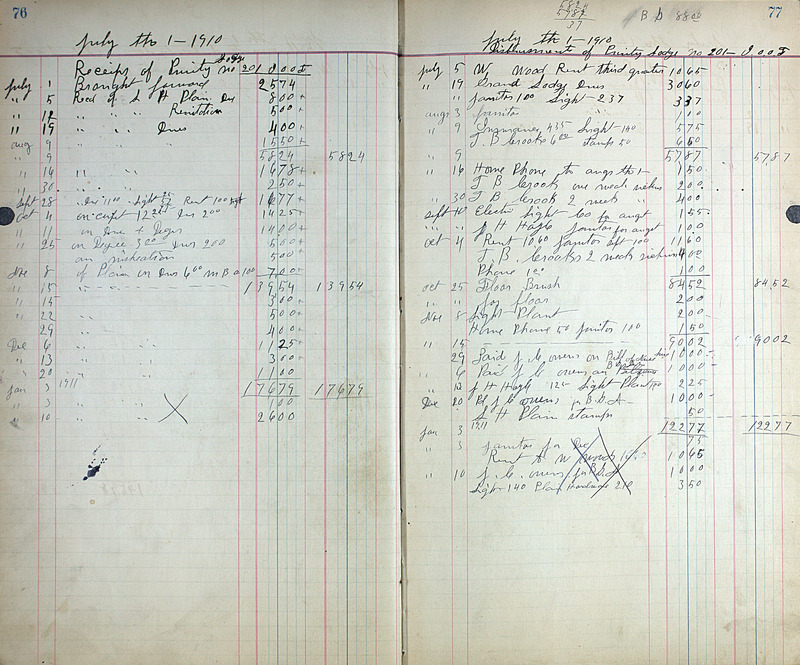 76
July the 1 - 1910
Receips of Purity Lodge no 201 I.O.O.F
July 1 Brought forward 2574
" 5 Recd of L H Plain Dus 800
" 12 " " " Renitation 500
" 19 " " " Dues 400
aug 9 " " " 1550
" 9 5824 5824
" 14 " " 1678
" 30 " 250
Sept 28 " Dus 1100 Light 25 Rent 100 1677
Oct 4 on Dus 200 1425
" 11 on Dus & Degres 1400
" 25 on Degree 300 Dus 200 500
on 500
Nov 8 of Plain on Dus 600 m B a 100 700
" 15 13954 13954
" 15 " 300
" 22 " 500
29 " 400
Dec 6 " " 1125
" 13 " " 300
" 20 " " 1100
Jan 3 1911 17679 17679
" 3 " " 100
" 10 " " 2600
77
5824
5787
37
B D 8800
July the 1 - 1910
Disbursment of Purity Lodge no 201 - I.O.O.F
July 5 W. Wood Rent third quater 1065
" 19 Grand Lodge Dues 3060
" " Janitor 100 Light - 237 337
aug 3 Janitor 100
" 9 Insurance 435 Light 100 575
J. B Crooks 600 Lamp 50 650
" 9 5787 5787
" 16 Home Phone to augt the 1 - 150
J B Crook one week 200
" 30 J B Crook 2 week " 400
Sept 10 Electric Light 60 to augt 155
" " J H Hagle Janitor for augt 100
Oct 4 Rent 1060 Janitor sept 100 1160
J. B. Crooks 2 week 400
Phone 100 100
Oct 25 Floor Brush 8452 8452
" " for floor 200
Nov 8 Light Plant 200
Home Phone 50 Janitor 100 150
" 15 9002 9002
29 Paid J. C. Owens on Bill 1000
" 6 Paid J C Owens on 1000
" 12 J H Hagle 125 Light Plant 100 225
Dec 20 Pd J C Owens for B.D.A. 1000
L H Plain stamps 50
Jan 3 1911 12277 12277
" 3 Janitor for Dec 75
Rent to W Wood 1065 1065
" 10 J. C. Owens for B.D.A 1000
Light 140 Plain 210 350